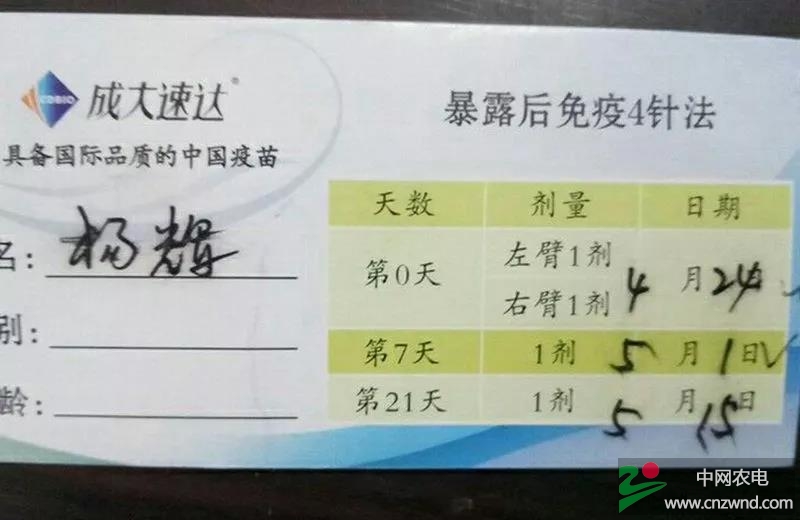 CDBIO 成大速达®
具备国际品质的中国疫苗
名：杨辉
别：
龄：
暴露后免疫4针法
天数 剂量 日期
第0天 左臂1剂 右臂1剂 4月24日
第7天 1剂 5月1日√
第21天 1剂 5月15日
中网农电
www.cnzwnd.com